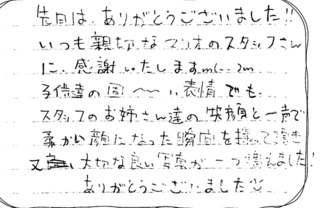 先日は、ありがとうございました!!
いつも親切なマリオのスタッフさん
に、感謝いたしますm(_ _)m
子供達の固〜〜い表情でも、
スタッフのお姉さん達の笑顔と一声で
柔かい顔になった瞬間を撮って頂き
又、大切な良い写真が一つ増えました!
ありがとうございました